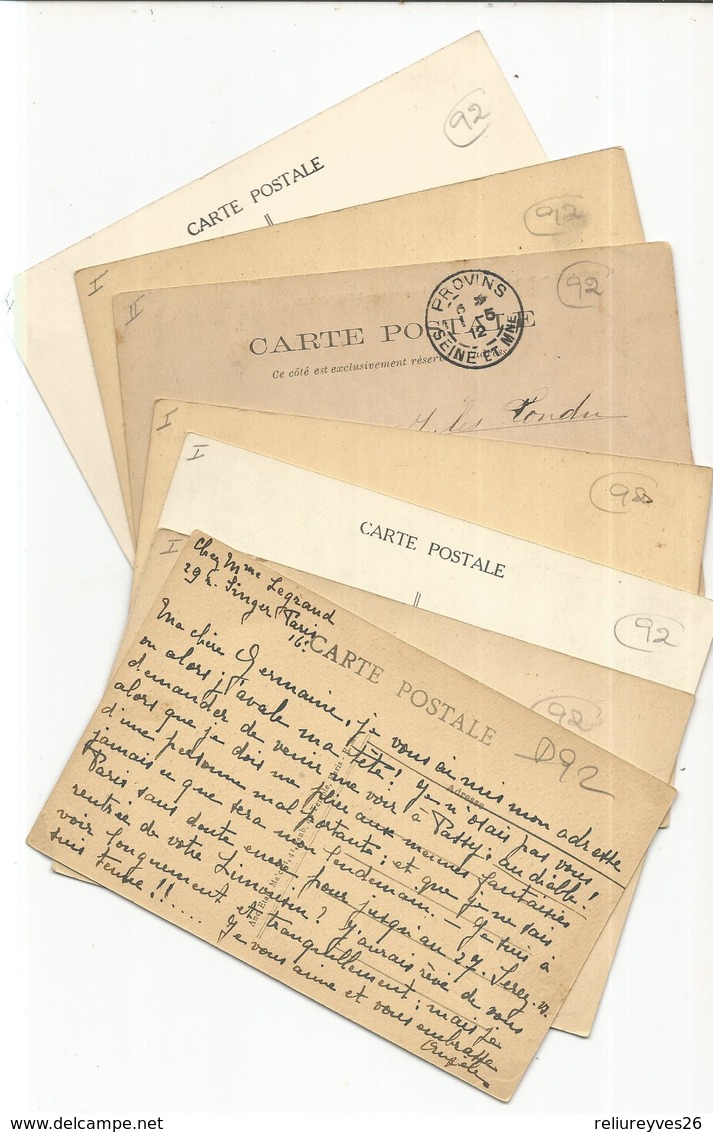 92
CARTE POSTALE
92
I
92
II
PROVINS
6
1 - 5
12
SEINE ET MNE
CARTE POSTALE
Ce côté est exclusivement réservé
I
98
I
CARTE POSTALE
92
I
92
D92
CARTE POSTALE
Adresse
Chez Mme Legrand
29 r. Singer Paris
16e
Ma chère Germaine, je vous ai mis mon adresse
ou alors j'avale ma tête! Je n'osais pas vous
demander de venir me voir à Passy: au diable!
alors que je dois me plier aux menues fantaisies
d'une personne mal portante; et que je ne sais
jamais ce que sera mon lendemain. - Je suis à
Paris sans doute encore pour jusqu'au 27. Serez-vs
rentrée de votre Limousin? J'aurais rêvé de vous
voir longuement et tranquillement: mais je
suis tenue!!....
Je vous aime et vous embrasse
Angèle
reliureyves26